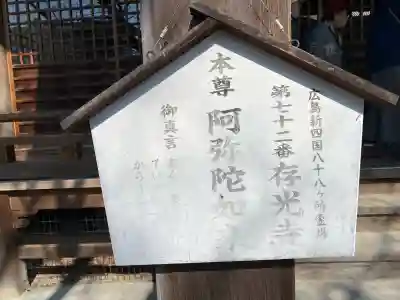 広島新四国八十八ヶ所霊場
第七十二番 存光寺
本尊 阿弥陀如来
御真言